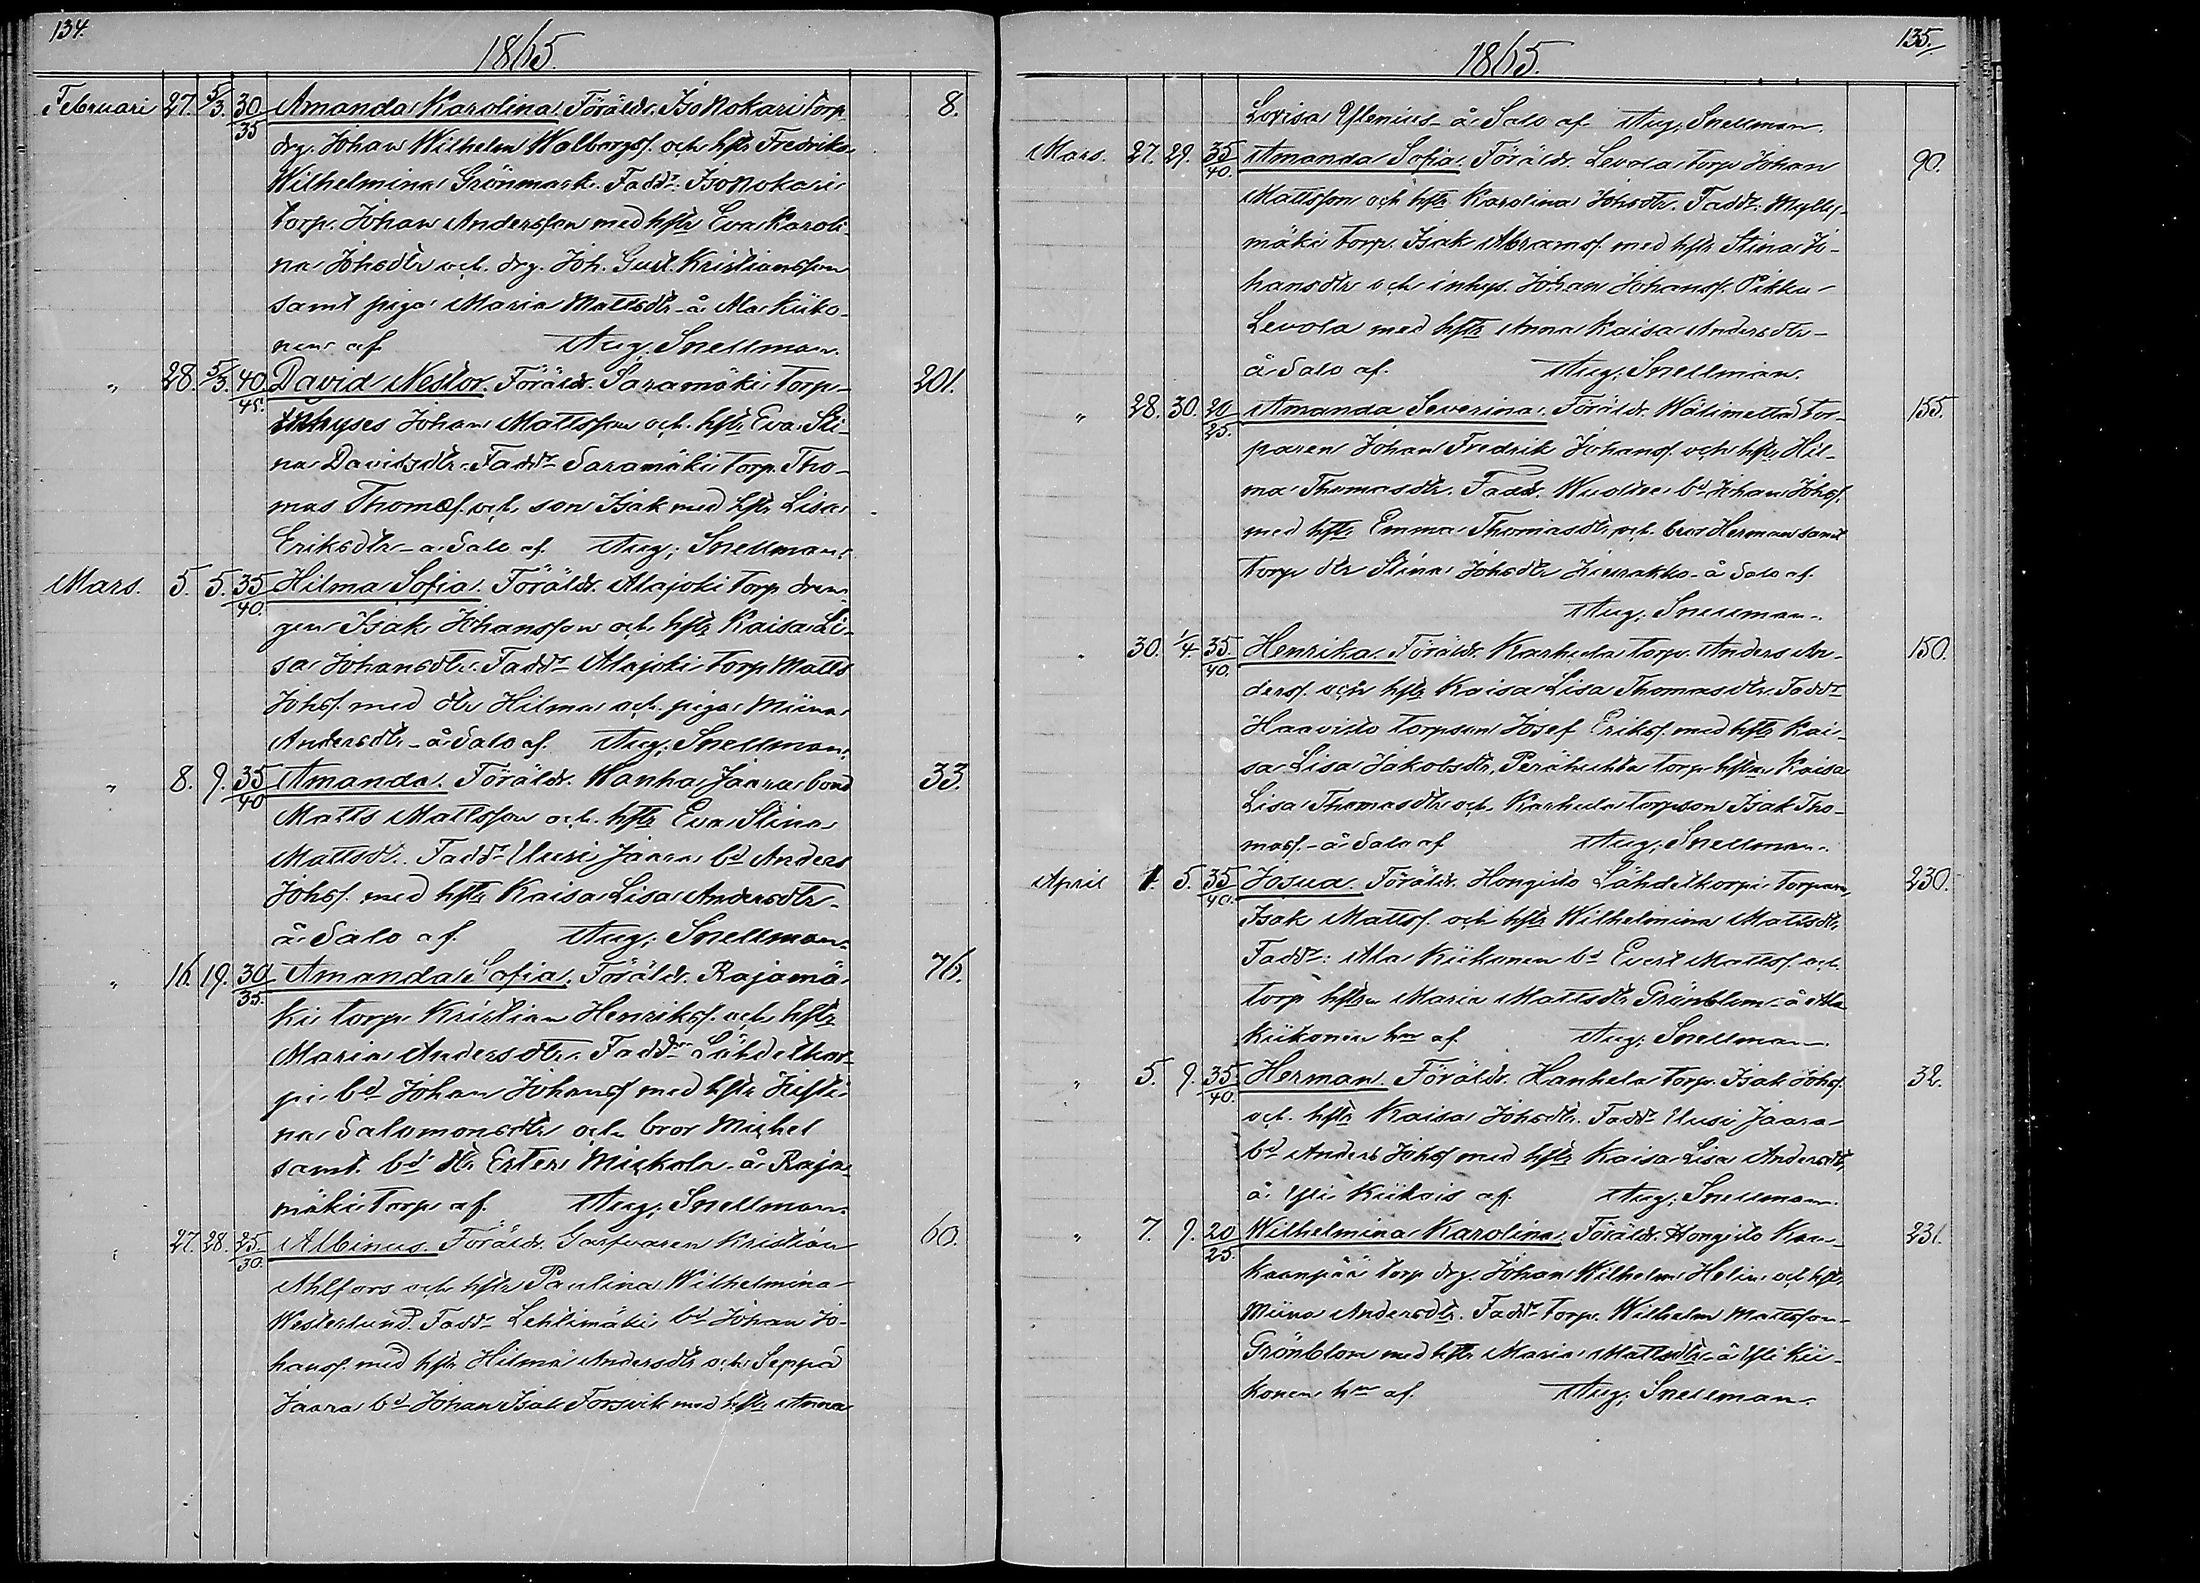 134.
1865.
Februari 27. 5/3. 30/35 Amanda Karolina. Föräldr. Iso Nokari torp 8.
drg. Johan Wilhelm Walborgs. och hstr Fredrika
Wilhelmina Grönmark. Faddr: Iso Nokari
torp. Johan Andersson med hstr Eva Karoli-
na Johsdtr och drg. Joh. Gust. Kristiansson
samt piga Maria Mattsdtr - å Ala Kiiko-
nen af Aug. Snellman.
" 28. 5/3. 40/45. David Nestor. Föräldr. Saramäki torp. 201.
inhyses Johan Mattsson och hstr Eva Sti-
na Davidsdtr. Faddr Saramäki torp. Tho-
mas Thomæs. och son Isak med hstr Lisa
Eriksdtr - å Salo af Aug. Snellman.
Mars. 5. 5. 35/40. Hilma Sofia. Föräldr. Alajoki torp drän-
gen Isak Johansson och hstr Kaisa Li-
sa Johansdtr. Faddr Alajoki torp Matts
Johss. med dtr Hilma och piga Miina
Andersdtr - å Salo af. Aug. Snellman.
" 8. 9. 35/40 Amanda. Föräldr. Wanha Jaara bond 33.
Matts Mattsson och hstr Eva Stina
Mattsdt. Faddr Uusi Jaara bd Anders
Johss. med hstr Kaisa Lisa Andersdtr -
å Salo af. Aug. Snellman.
" 16. 19. 30/35. Amanda Sofia. Föräldr. Rajamä- 76.
ki torp. Kristian Henrikss. och hstr
Maria Andersdtr. Faddr Lähdekor-
pi bd Johan Johanss med hstr Justi-
na Salomonsdtr och bror Michel
samt. bd dtr Ester Mickola - å Raja-
mäki torp af. Aug. Snellman.
" 27. 28. 25/30. Albinus. Föräldr. Garfvaren Kristian 60.
Ahlfors och hstr Paulina Wilhelmina
Westerlund. Faddr Lehtimäki bd Johan Jo-
hanss. med hstr Hilma Andersdtr och Seppä
Jaara bd Johan Isak Forsvik med hstr Anna
135.
1865.
Lovisa Ylenius - å Salo af. Aug. Snellman.
Mars. 27. 29. 35/40. Amanda Sofia. Föräldr. Levola torp Johan 90.
Mattsson och hstr Karolina Johsdtr. Faddr: Mylly-
mäki torp. Isak Abramss. med hstr Stina Jo-
hansdtr och inhys. Johan Johanss. Pikku
Levola med hstr Anna Kaisa Andersdtr -
å Salo af. Aug. Snellman.
" 28. 30. 20/25. Amanda Severina. Föräldr. Wälimetta tor- 155.
paren Johan Fredrik Johanss. och hstr Hil-
ma Thomasdtr. Faddr. bd Johan Johss.
med hstr Emma Thomasdtr, och bror Herman samt
torp dtr Stina Johsdtr - å Salo af.
Aug. Snellman.
" 30. 1/4. 35/40. Henrika. Föräldr. Karhula torp. Anders An- 150.
derss. och hstr Kaisa Lisa Thomasdtr. Faddr
Haavisto torpson Josef Erikss. med hstr Kai-
sa Lisa Jakobsdtr, Perähuhta torp hstrn Kaisa
Lisa Thomasdtr och Karhula torpson Isak Tho-
mass. - å Salo af Aug. Snellman.
April 1. 5. 35/40. Josua. Föräldr. Hongisto Lähdekorpi torparn 230.
Isak Mattss. och hstr Wilhelmina Mattsdtr.
Faddr: Ala Kiikonen bd Evert Mattss. och
torp hstrn Maria Mattsdtr Grönblom - å Ala
Kiikonen hn af. Aug. Snellman.
" 5. 9. 35/40. Herman. Föräldr. Hanhela torp. Isak Johss. 32.
och hstr Kaisa Johsdtr. Faddr Uusi Jaara
bd Anders Johss med hstr Kaisa Lisa Andersdtr
å Yli Kiikois af. Aug. Snellman.
" 7. 9. 20/25 Wilhelmina Karolina. Föräldr. Hongisto Kan- 231.
kaanpää torp drg. Johan Wilhelm Helin och hstr
Miina Andersdtr. Faddr torp. Wilhelm Mattsson
Grönblom med hstr Maria Mattsdtr - å Yli Kii-
konen hn af. Aug. Snellman.